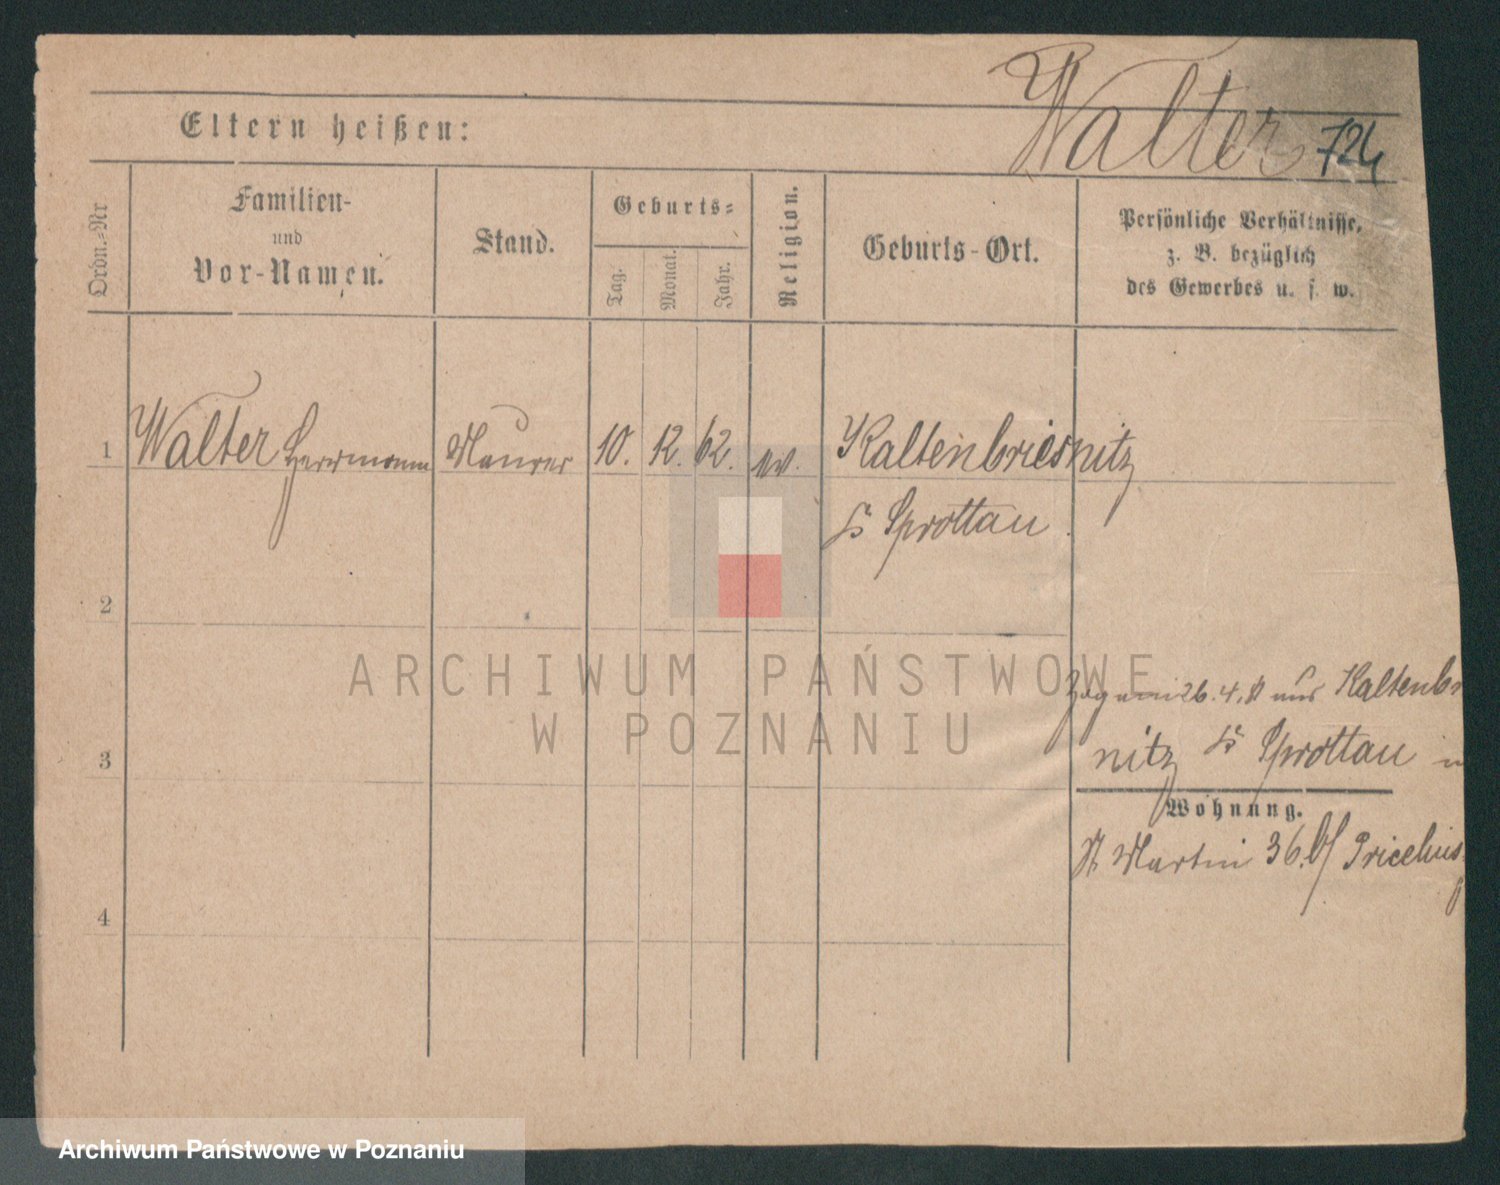 Walter 724
Eltern heißen:
Ordn.=Nr
Familien-
und
Vor-Namen.
Stand.
Geburts=
Tag.
Monat.
Jahr.
Religion.
Geburts-Ort.
Persönliche Verhältnisse,
z. B. bezüglich
des Gewerbes u. s. w.
1 Walter Herrmann Maurer 10. 12. 62. ev. Kaltenbriesnitz
Sprottau
2
26. 4. aus Kaltenbr
nitz Sprottau
3
Wohnung.
St Martin 36. b/
4
ARCHIWUM PAŃSTWOWE
W POZNANIU
Archiwum Państwowe w Poznaniu